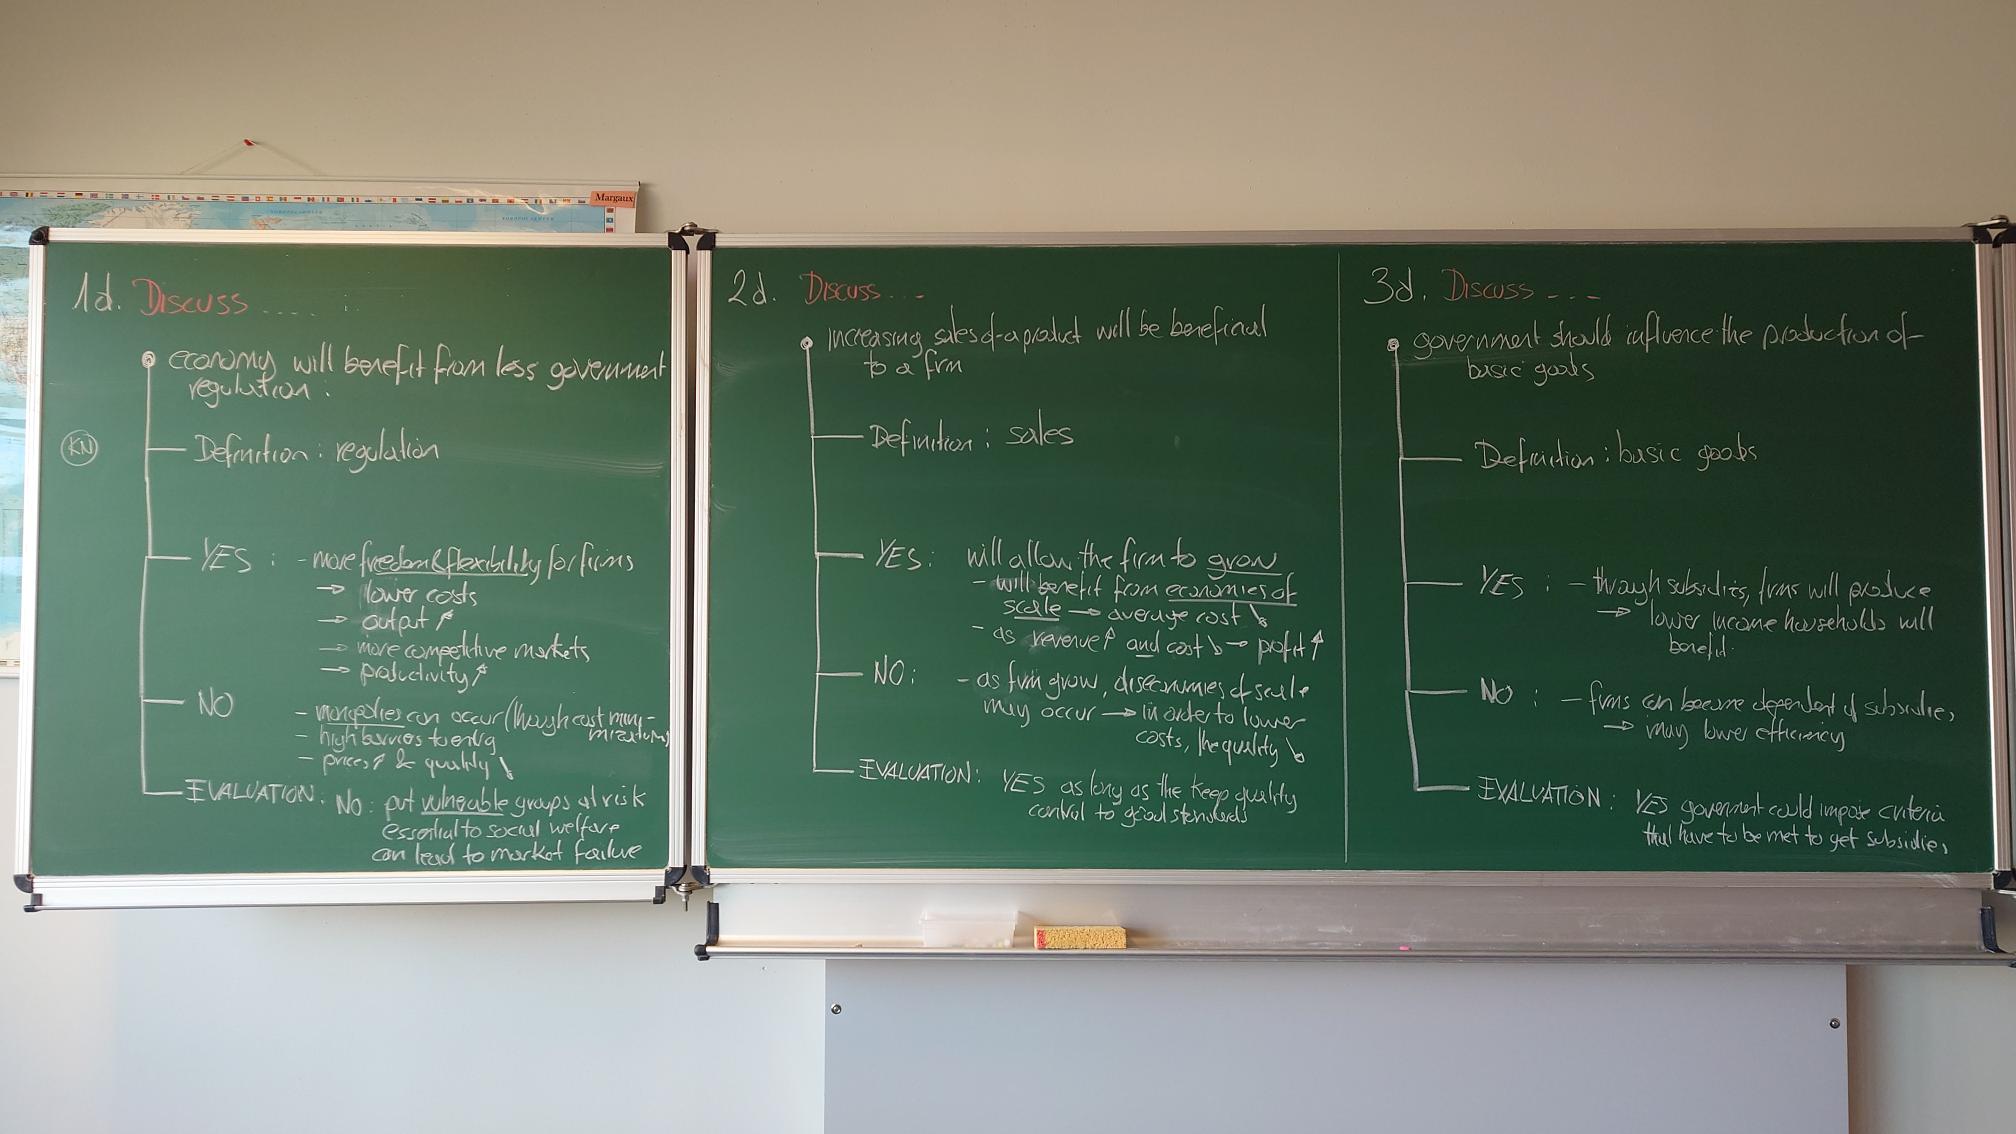 Margaux
1d. Discuss .... .
economy will benefit from less government
regulation :
KN
Definition : regulation
YES : - more freedom & flexibility for firms
→ lower costs
→ output ↑
→ more competitive markets
→ productivity ↑
NO
- monopolies can occur (though cost mini-
mization)
- high barriers to entry
- prices ↑ & quality ↓
EVALUATION : NO : put vulnerable groups at risk
essential to social welfare
can lead to market failure
2d. Discuss ...
increasing sales of a product will be beneficial
to a firm
Definition : sales
YES : will allow the firm to grow
- will benefit from economies of
scale → average cost ↓
- as revenue ↑ and cost ↓ → profit ↑
NO : - as firm grow, diseconomies of scale
may occur → in order to lower
costs, the quality ↓
EVALUATION : YES as long as the keep quality
control to good standards
3d. Discuss ---
government should influence the production of
basic goods
Definition : basic goods
YES : - through subsidies, firms will produce
→ lower income households will
benefit.
NO : - firms can become dependent of subsidies,
→ may lower efficiency
EVALUATION : YES government could impose criteria
that have to be met to get subsidies,